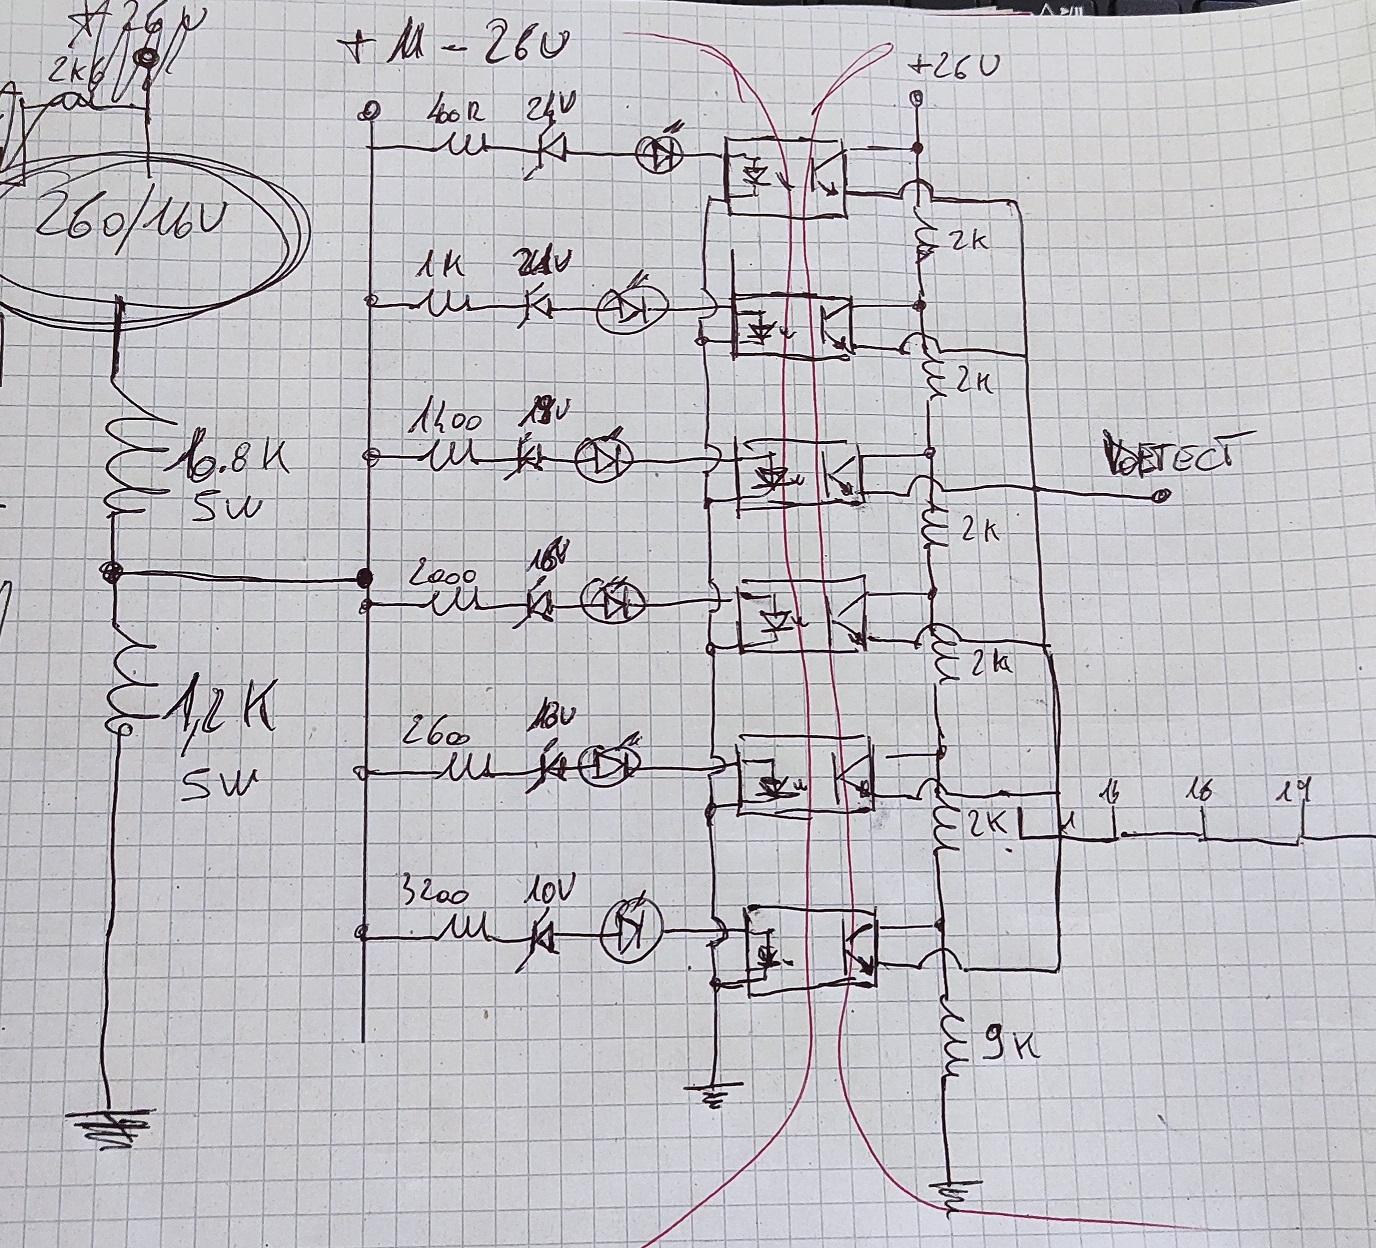 2K6
+ 11 - 26V
+26V
400R 24V
260/116V
2K
1K 21V
2K
1400 19V
16.8K
5W
VDETECT
2K
2000 16V
2K
1,2K
5W
2600 13V
2K
15 16 17
3200 10V
9K